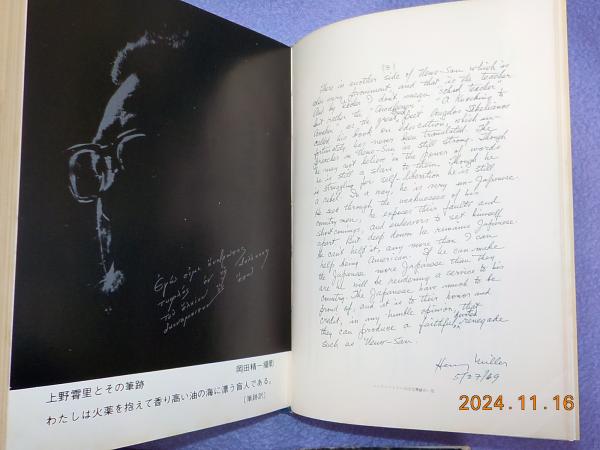 岡田精一撮影
上野霄里とその筆跡
わたしは火薬を抱えて香り高い油の海に漂う盲人である。
[筆跡訳]
(3)
There is another side of Ueno-San which is
also very prominent, and that is the teacher.
And by teacher I don't mean "school teacher"
but rather the "Awakener". "A Knocking to
Awaken" as the great Poet Angelos Sikelianos
called his book on education, which un-
fortunately has never been translated. The
preacher in Ueno-San is still strong. Though
he may not believe in the power of words
he is still a slave to them. Though he
is struggling for self-liberation he is still
a rebel. In a way, he is very un-Japanese.
He sees through the weaknesses of his
country men, he exposes their faults and
short comings, and endeavors to set himself
apart. But deep down he remains Japanese.
He can't help it, any more than I can
help being American. If he can make
the Japanese more Japanese than they
are he will be rendering a service to his
country. The Japanese have much to be
proud of, and it is to their honor and
credit, in my humble opinion, that
they can produce a faithful renegade
such as Ueno-San.
Henry Miller
5/27/69
2024.11.16